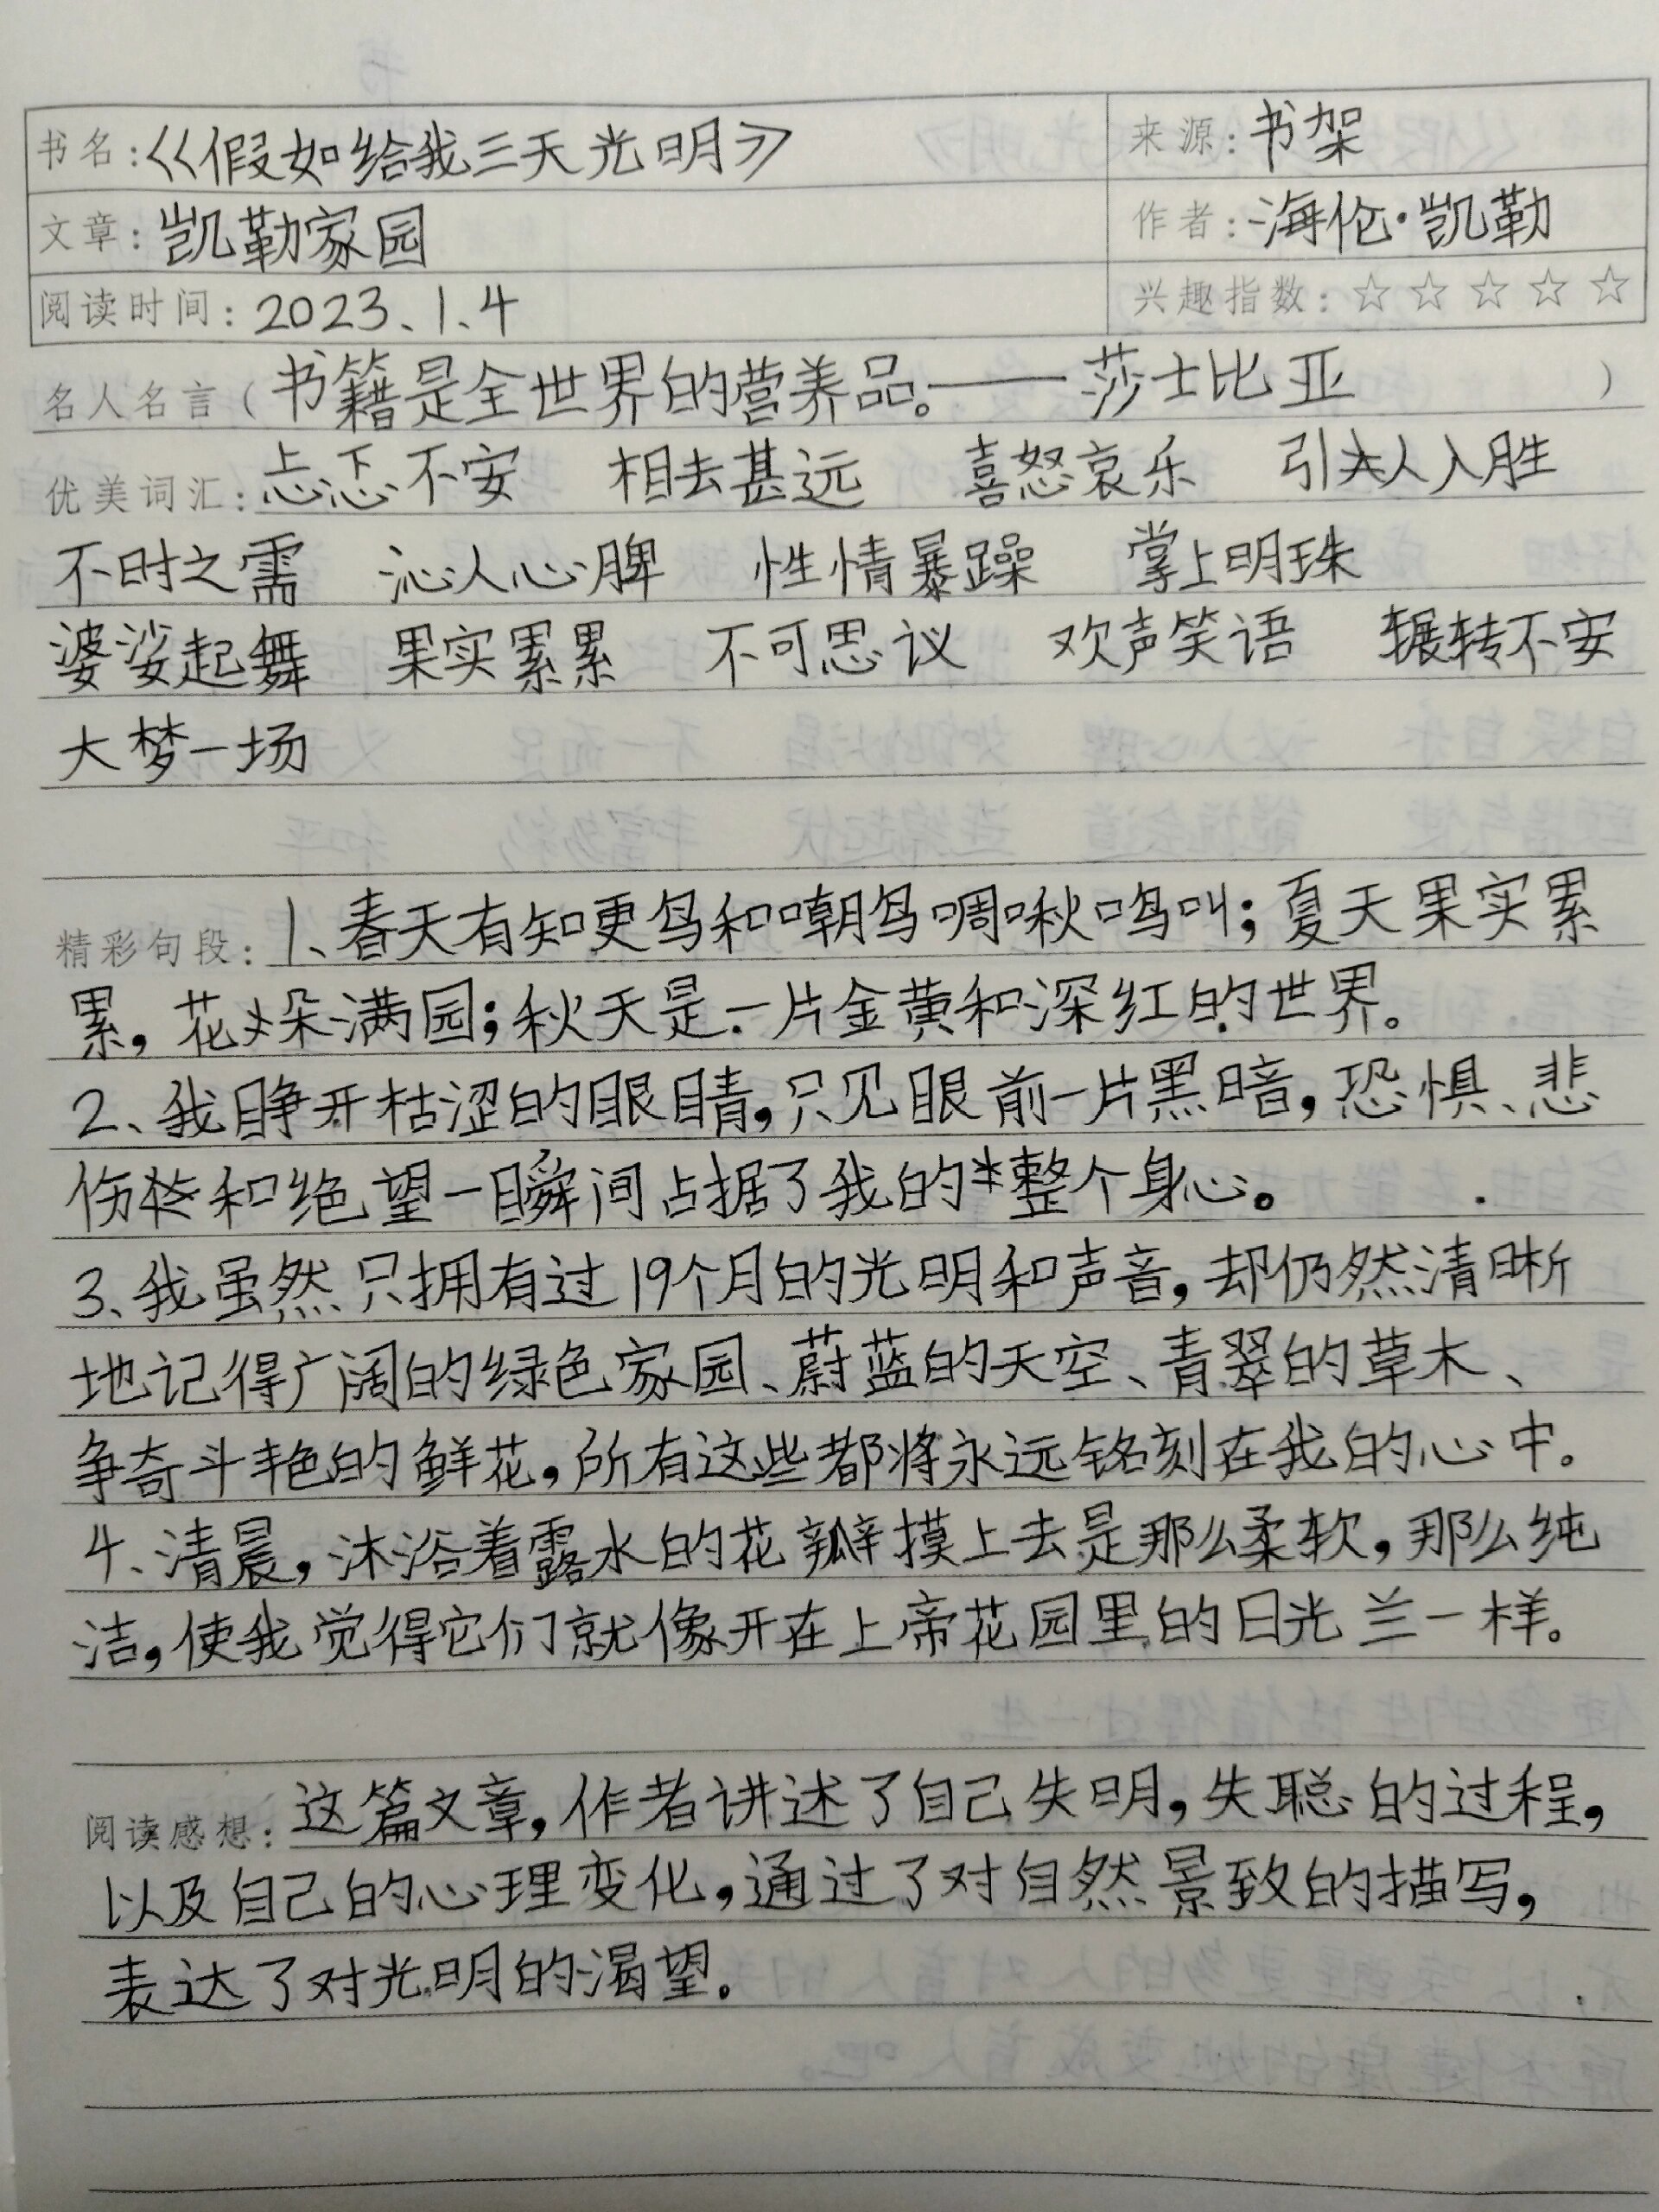 书名：《假如给我三天光明》 来源：书架
文章：凯勒家园 作者：海伦·凯勒
阅读时间：2023、1、4 兴趣指数：☆☆☆☆☆
名人名言（书籍是全世界的营养品。——莎士比亚）
优美词汇：忐忑不安 相去甚远 喜怒哀乐 引人入胜
不时之需 沁人心脾 性情暴躁 掌上明珠
婆娑起舞 果实累累 不可思议 欢声笑语 辗转不安
大梦一场
精彩句段：1、春天有知更鸟和嘲鸟啁啾鸣叫；夏天果实累
累，花朵满园；秋天是一片金黄和深红的世界。
2、我睁开枯涩的眼睛，只见眼前一片黑暗，恐惧、悲
伤和绝望一瞬间占据了我的整个身心。
3、我虽然只拥有过19个月的光明和声音，却仍然清晰
地记得广阔的绿色家园、蔚蓝的天空、青翠的草木、
争奇斗艳的鲜花，所有这些都将永远铭刻在我的心中。
4、清晨，沐浴着露水的花瓣摸上去是那么柔软，那么纯
洁，使我觉得它们就像开在上帝花园里的日光兰一样。
阅读感想：这篇文章，作者讲述了自己失明，失聪的过程，
以及自己的心理变化，通过了对自然景致的描写，
表达了对光明的渴望。